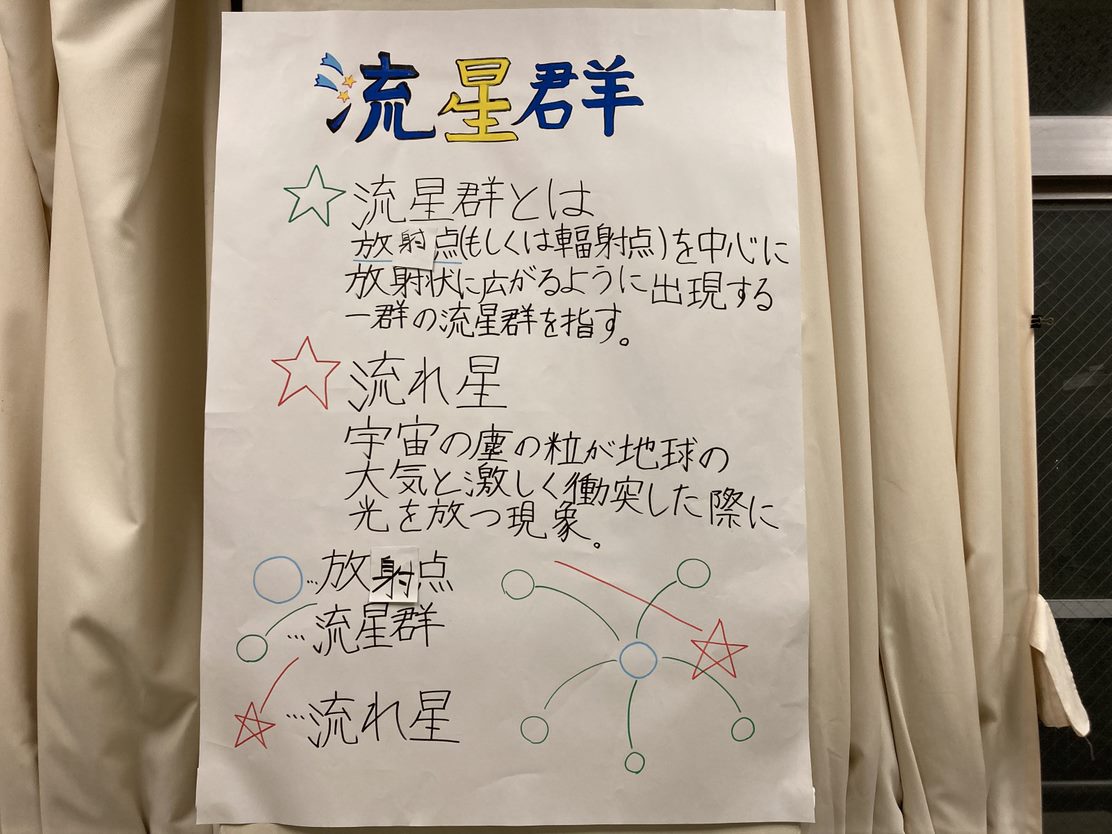 流星群
流星群とは
放射点(もしくは輻射点)を中心に
放射状に広がるように出現する
一群の流星群を指す。
流れ星
宇宙の塵の粒が地球の
大気と激しく衝突した際に
光を放つ現象。
…放射点
…流星群
…流れ星